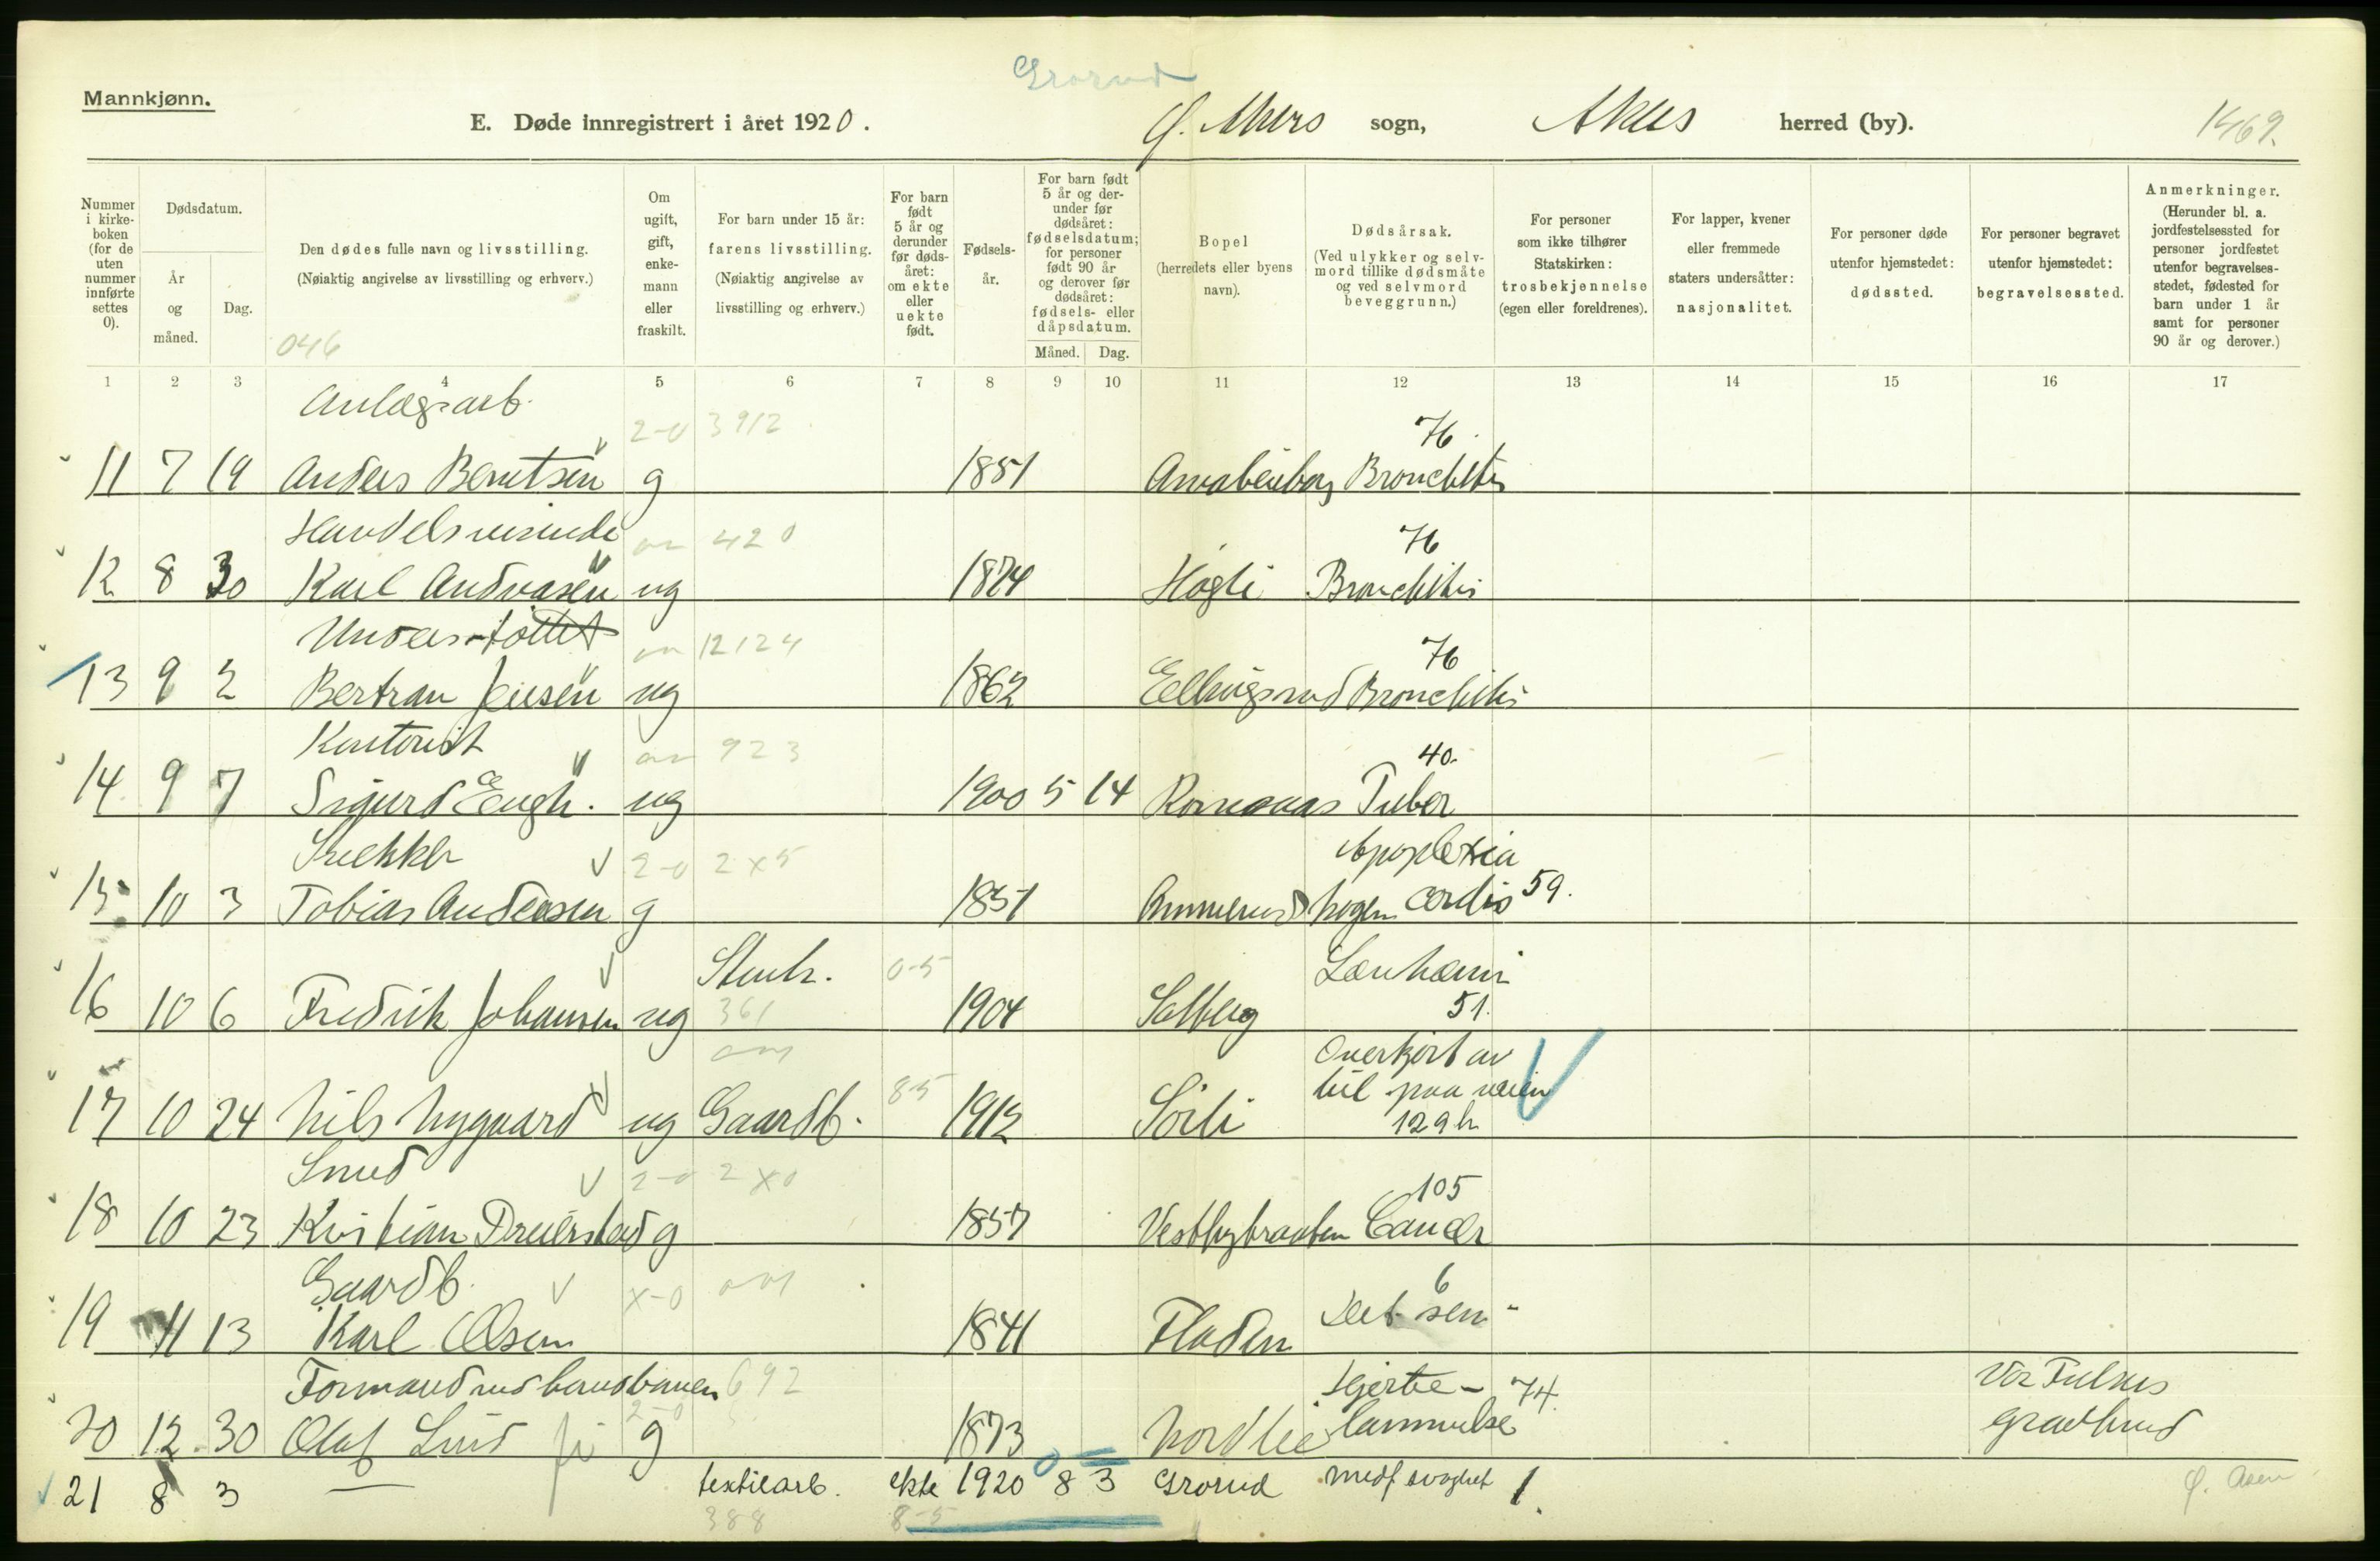 Grorud
Mannkjønn.
E. Døde innregistrert i året 1920. Ø. Akers sogn, Akers herred (by). 1469.
Nummer i kirkeboken (for de uten nummer innførte settes 0).
Dødsdatum.
År og måned.
Dag.
Den dødes fulle navn og livsstilling.
(Nøiaktig angivelse av livsstilling og erhverv.)
046
Om ugift, gift, enkemann eller fraskilt.
For barn under 15 år: farens livsstilling.
(Nøiaktig angivelse av livsstilling og erhverv.)
For barn født 5 år og derunder før dødsåret: om ekte eller uekte født.
Fødselsår.
For barn født 5 år og derunder før dødsåret: fødselsdatum; for personer født 90 år og derover før dødsåret: fødsels- eller dåpsdatum.
Måned. Dag.
Bopel
(herredets eller byens navn).
Dødsårsak.
(Ved ulykker og selvmord tillike dødsmåte og ved selvmord beveggrunn.)
For personer som ikke tilhører Statskirken: trosbekjennelse (egen eller foreldrenes).
For lapper, kvener eller fremmede staters undersåtter: nasjonalitet.
For personer døde utenfor hjemstedet: dødssted.
For personer begravet utenfor hjemstedet: begravelsessted.
Anmerkninger.
(Herunder bl. a. jordfestelsessted for personer jordfestet utenfor begravelsesstedet, fødested for barn under 1 år samt for personer 90 år og derover.)
1 2 3 4 5 6 7 8 9 10 11 12 13 14 15 16 17
Anlægsarb. 2-0 3912 76
11 7 19 Anders Berntsen g 1851 Bronchitis
Handelsreisende 420 76
12 8 30 Karl Andreasen ug 1874 Høgli Bronchitis
Understøttet 12124 76
13 9 2 Bertran Jensen ug 1862 Ellingsrud Bronchitis
Kontorist 923 40.
14 9 7 Sigurd Engh. ug 1900 5 14 Romsaas Tuber
Snekker 2-0 2x5 Apoplexia
15 10 3 Tobias Andersen g 1851 Ammerudhogen cordis 59.
Stenh. 0-5 Leukæmi
16 10 6 Fredrik Johansen ug 361 1904 Solberg 51.
Overkjørt av
bil paa veien
17 10 24 Nils Nygaard ug Gaardb. 8-5 1912 Sørli 129h
Smed 2-0 2x0 105
18 10 23 Kristian g 1857 Vestbybraaten Cancer
Gaardb. x-0 6
19 11 13 Karl Olsen 1841 Fladen
Formand ved 692 Hjerte- 74. Vor Frelsers
20 12 30 Olaf Lund g 1873 Nordlie lammelse gravlund
21 8 3 — textilarb. ekte 1920 8 3 Grorud medf svaghet 1.
388 8-5